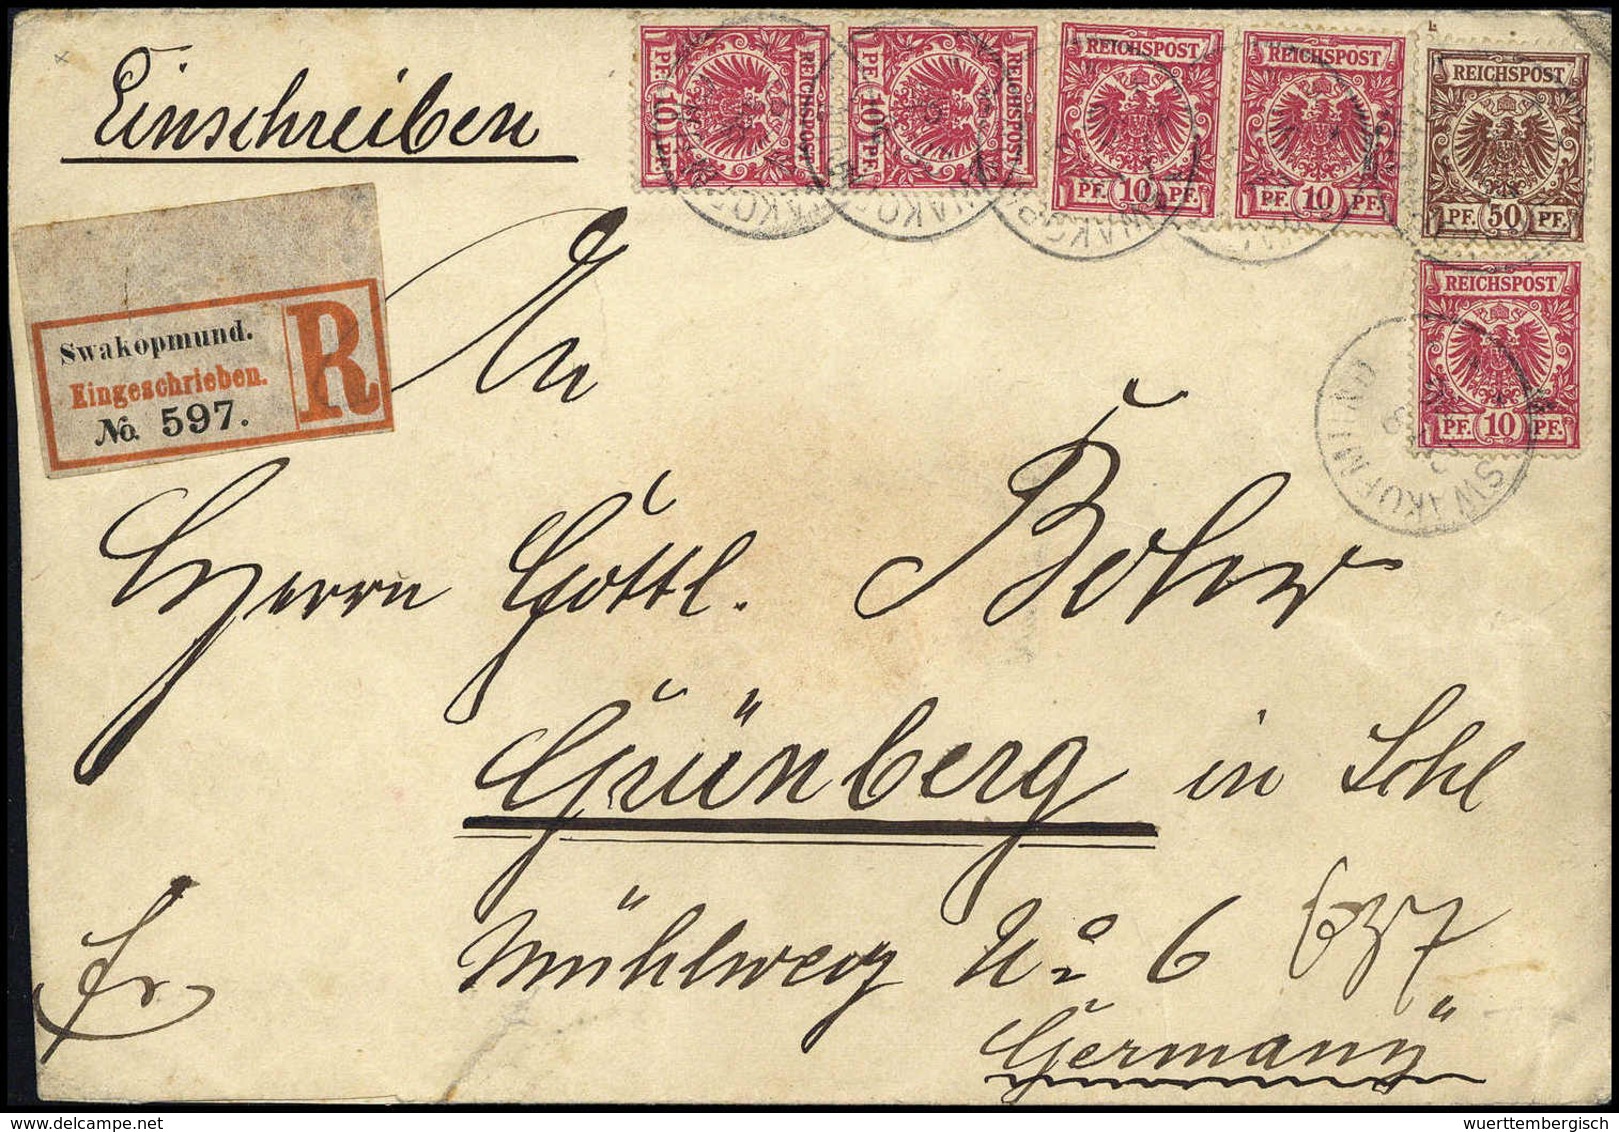 Einschreiben
PF. 10 PF.
REICHSPOST
PF. 10 PF.
REICHSPOST
REICHSPOST
PF. 10 PF.
REICHSPOST
PF. 10 PF.
REICHSPOST
PF. 50 PF.
REICHSPOST
PF. 10 PF.
SWAKOPMUND
Swakopmund.
Eingeschrieben.
No. 597.
R
An
Herrn Gottl.
Grünberg in Schl
Mühlweg No 6
637
Fr
Germany
wuerttembergisch